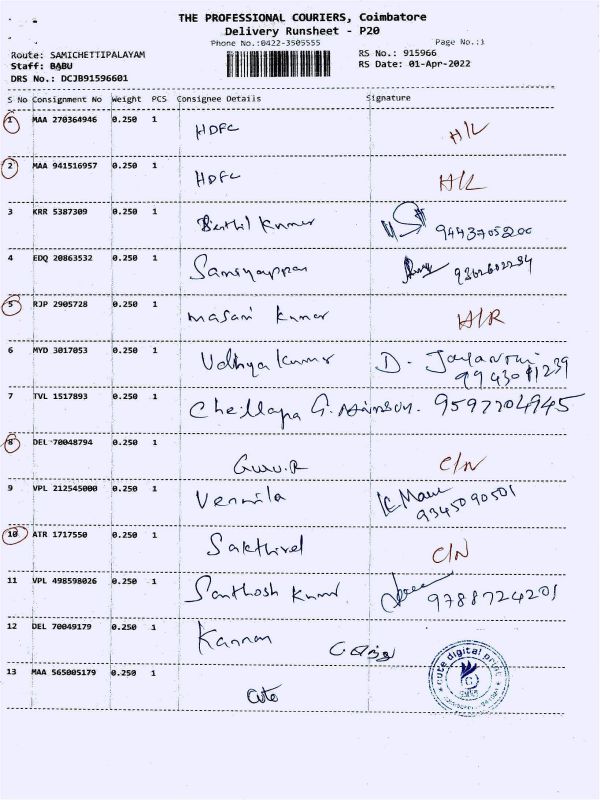 THE PROFESSIONAL COURIERS, Coimbatore
Delivery Runsheet - P20
Phone No.:0422-3505555 Page No.:1
Route: SAMICHETTIPALAYAM RS No.: 915966
Staff: BABU RS Date: 01-Apr-2022
DRS No.: DCJB91596601
S No Consignment No Weight PCS Consignee Details Signature
1 MAA 270364946 0.250 1 HDFC H/L
2 MAA 941516957 0.250 1 HDFC H/L
3 KRR 5387309 0.250 1 Kumar 9443705200
4 EDQ 20863532 0.250 1
5 RJP 2905728 0.250 1 Masani Kumar
6 MYD 3017053 0.250 1 Vdhya Kumar D. Jayanthi
7 TVL 1517893 0.250 1 9597204945
8 DEL 70048794 0.250 1 Guru.R C/N
9 VPL 212545000 0.250 1 Vennila 9345090501
10 ATR 1717550 0.250 1 Sakthivel C/N
11 VPL 498598026 0.250 1 Santhosh Kumar 9788724201
12 DEL 70049179 0.250 1 Kannan
13 MAA 565005179 0.250 1 Cute
cute digital print